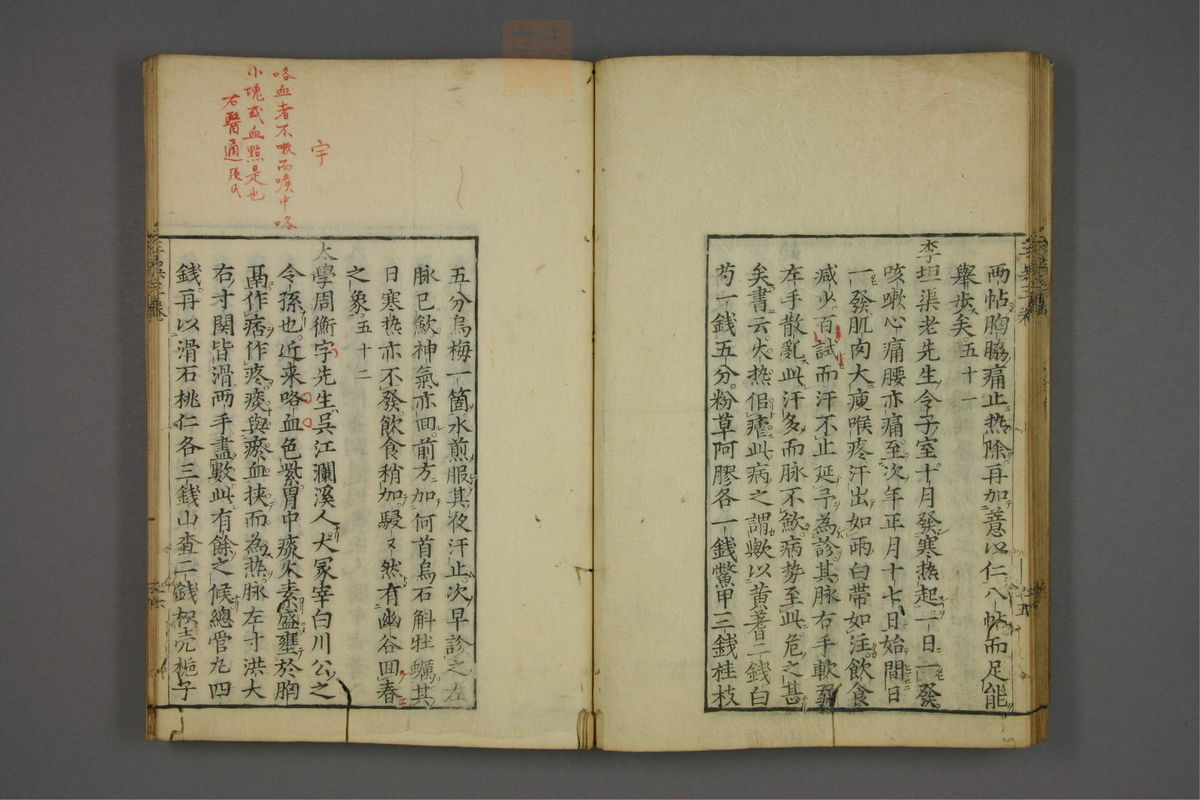 兩帖胸脇痛止热除再加薏以仁八帖而足能
舉步矣五十一
李坦渠老先生令子室十月發寒热起一日一發
咳嗽心痛腰亦痛至次年正月十七日始間日
一發肌肉大瘦喉疼汗出如雨白帶如注飲食
减少百試而汗不止延予為診其脉右手軟弱
左手散亂此汗多而脉不歛病势至此危之甚
矣書云火热佀瘧此病之謂歟以黄蓍二錢白
芍一錢五分粉草阿膠各一錢鱉甲三錢桂枝
五分烏梅一箇水煎服其夜汗止次早診之左
脉已歛神氣亦回前方加何首烏石斛牡蠣其
日寒热亦不發飲食稍加駸〻然有幽谷回春
之象五十二
太學周衡宇先生吳江瀾溪人大冢宰白川公之
令孫也近来咯血色紫胃中痰火素盛壅於胸
膈作痞作疼痰與瘀血挾而為热脉左寸洪大
右寸関皆滑两手盡數此有餘之候總管丸四
錢再以滑石桃仁各三錢山查二錢枳壳梔子
宇
咯血者不嗽而喉中咯
小塊或血點是也
右醫通張氏